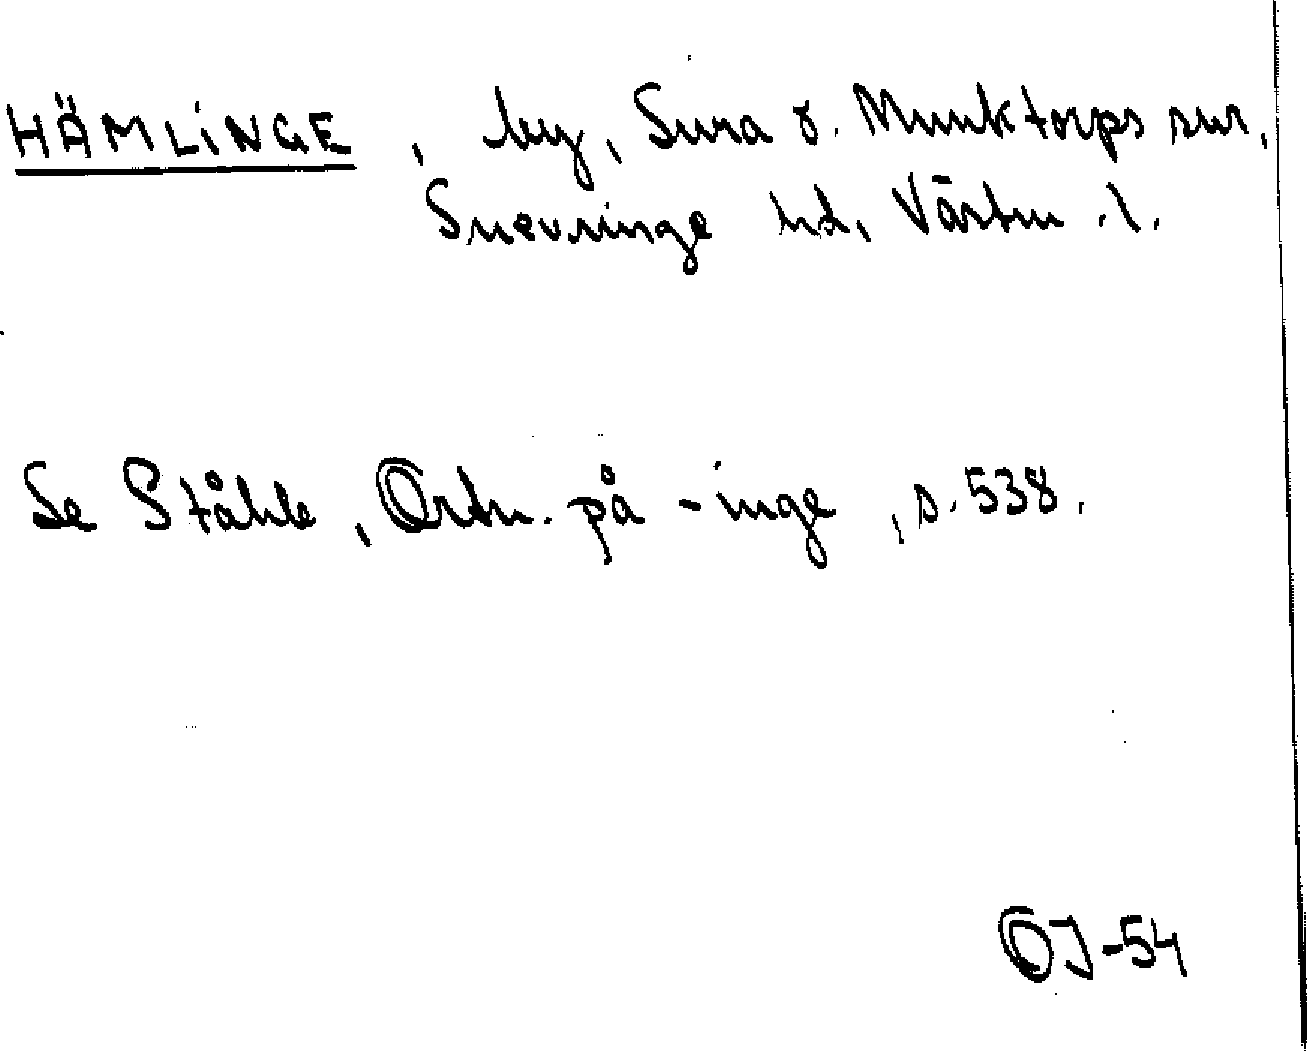 HÄMLINGE, by, Sura o. Munktorps snr,
Snevringe hd, Västm. l.
Se Ståhle, Ortn. på -inge, s. 538.
OJ-54